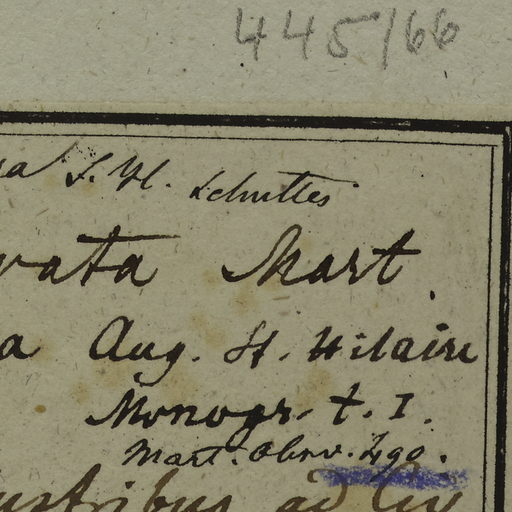 445/66
S. H. Schultes
vata Mart.
a Aug. St. Hilaire
Monogr. t. I.
Mart. Obsv. 290.
ustribus ad